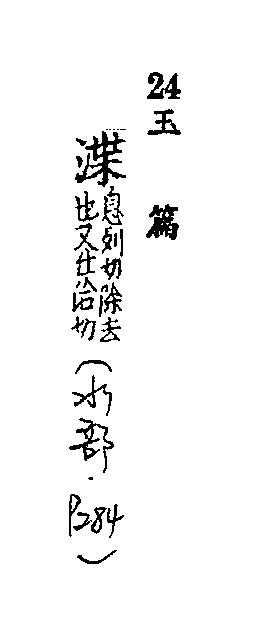 24玉篇
渫息列切除去也又仕洽切(水部.P284)